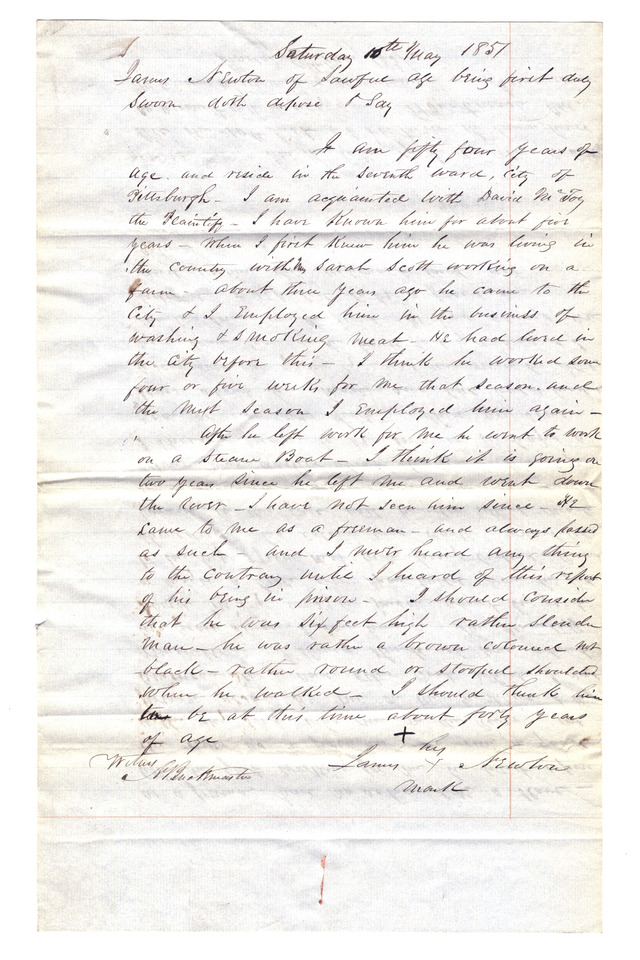 Saturday 10th May 1851
James Newton of Lawful age being first duly
Sworn doth depose & Say
I am fifty four years of
age and reside in the seventh ward, City of
Pittsburgh - I am acquainted with David McFoy
the Plaintiff - I have Known him for about five
years - When I first knew him he was living in
the country with Mrs Sarah Scott working on a
farm - about three years ago he came to the
City & I Employed him in the business of
washing & smoking meat - HE had lived in
the City before this - I think he worked some
four or five weeks for me that season and
the next season I Employed him again -
After he left work for me he went to work
on a Steam Boat - I think it is going on
two years since he left me and went down
the river - I have not seen him since - HE
came to me as a freeman - and always passed
as such - and I never heard any thing
to the contrary until I heard of this report
of his being in prison - I should consider
that he was six feet high rather slender
man - he was rather a brown coloured not
black - rather round or stooped shouldered
when he walked - I should think him
be at this time about forty years
of age
his
James + Newton
mark
Witness
Buckmaster